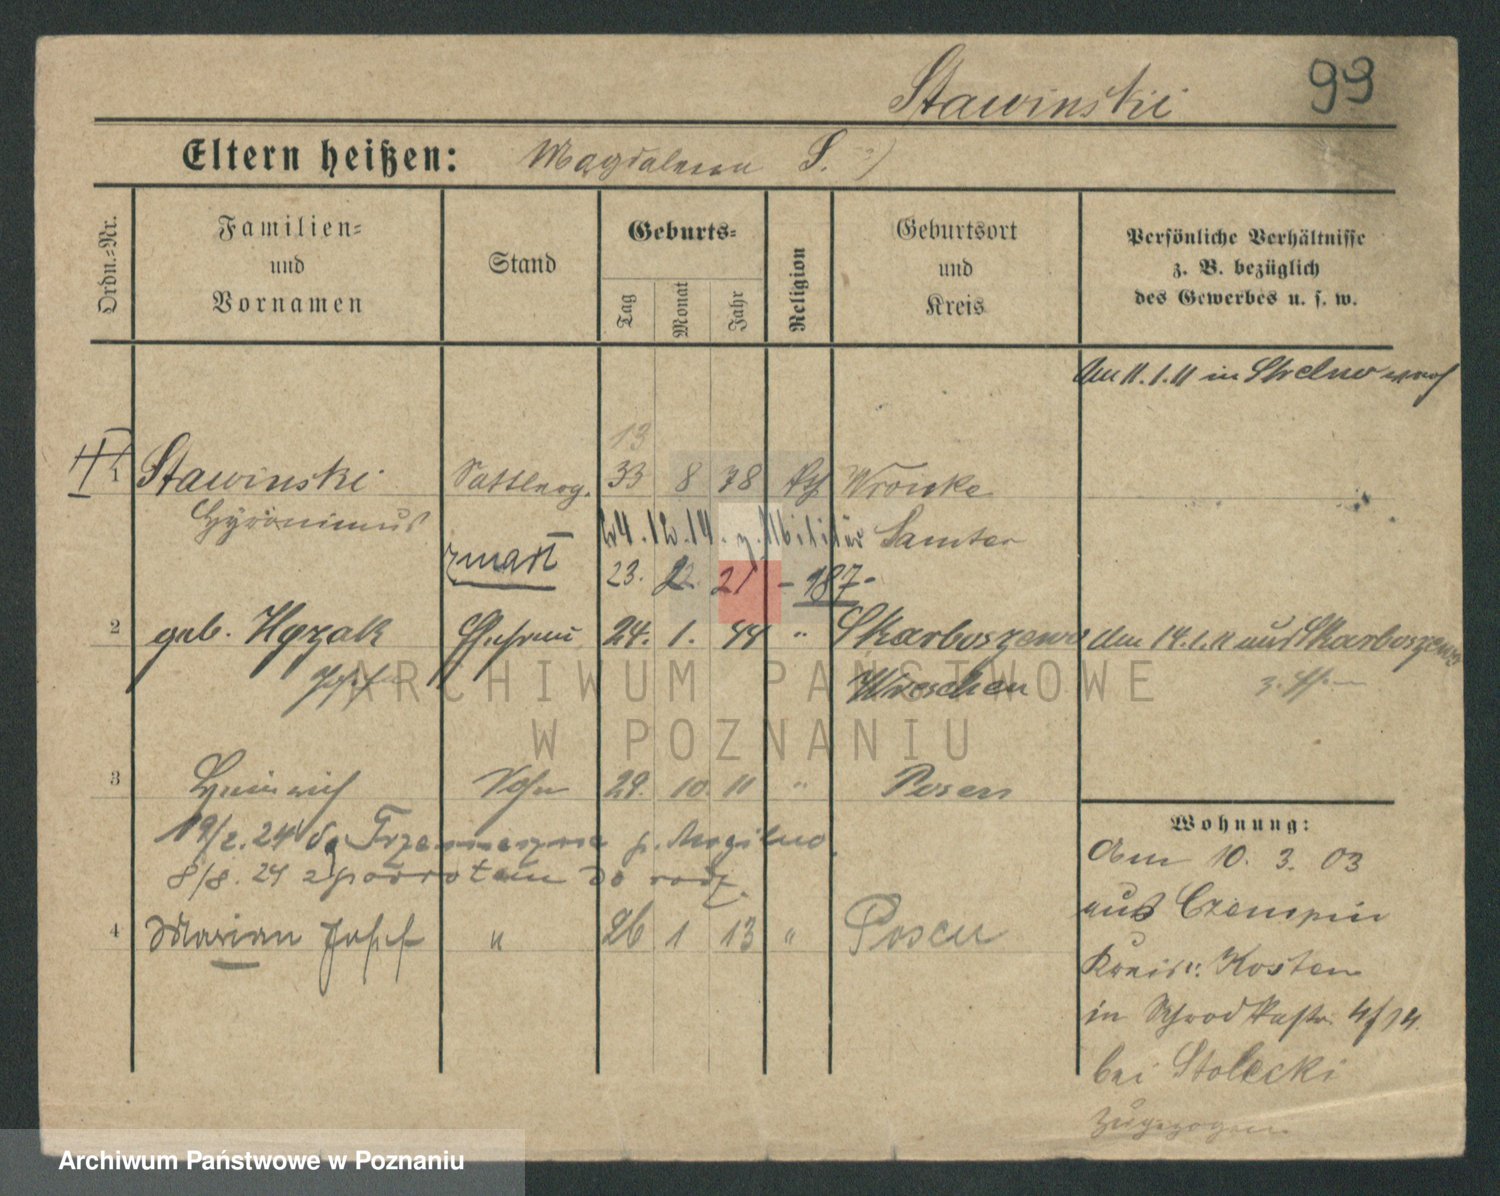 99
Stawinski
Eltern heißen: Magdalena S.
Ordn.-Nr.
Familien- und Vornamen
Stand
Geburts-
Tag
Monat
Jahr
Religion
Geburtsort und Kreis
Persönliche Verhältnisse z. B. bezüglich des Gewerbes u. s. w.
Am 11.1.11 in Strelno
13
1 Stawinski Sattlerg. 33 8 78 Wronke
Hyronimus 24.12.14. z. Militär Samter
zmarł 23. 2. 21 - 187-
2 geb. Ehefrau 24. 1. " Skarboszewo den 14.1.11 aus Skarboszewo
Josefa Wreschen
3 Heinrich Sohn 29. 10. 11 " Posen
19/2.24 do Trzemeszna p. Mogilno.
8/8.24 z powrotem do rodz.
4 Marian Josef " 26 1 13 " Posen
Wohnung:
Am 10. 3. 03
aus Czempin
Kreis: Kosten
in 4/14
bei Stolecki
zugezogen
ARCHIWUM PAŃSTWOWE
W POZNANIU
Archiwum Państwowe w Poznaniu